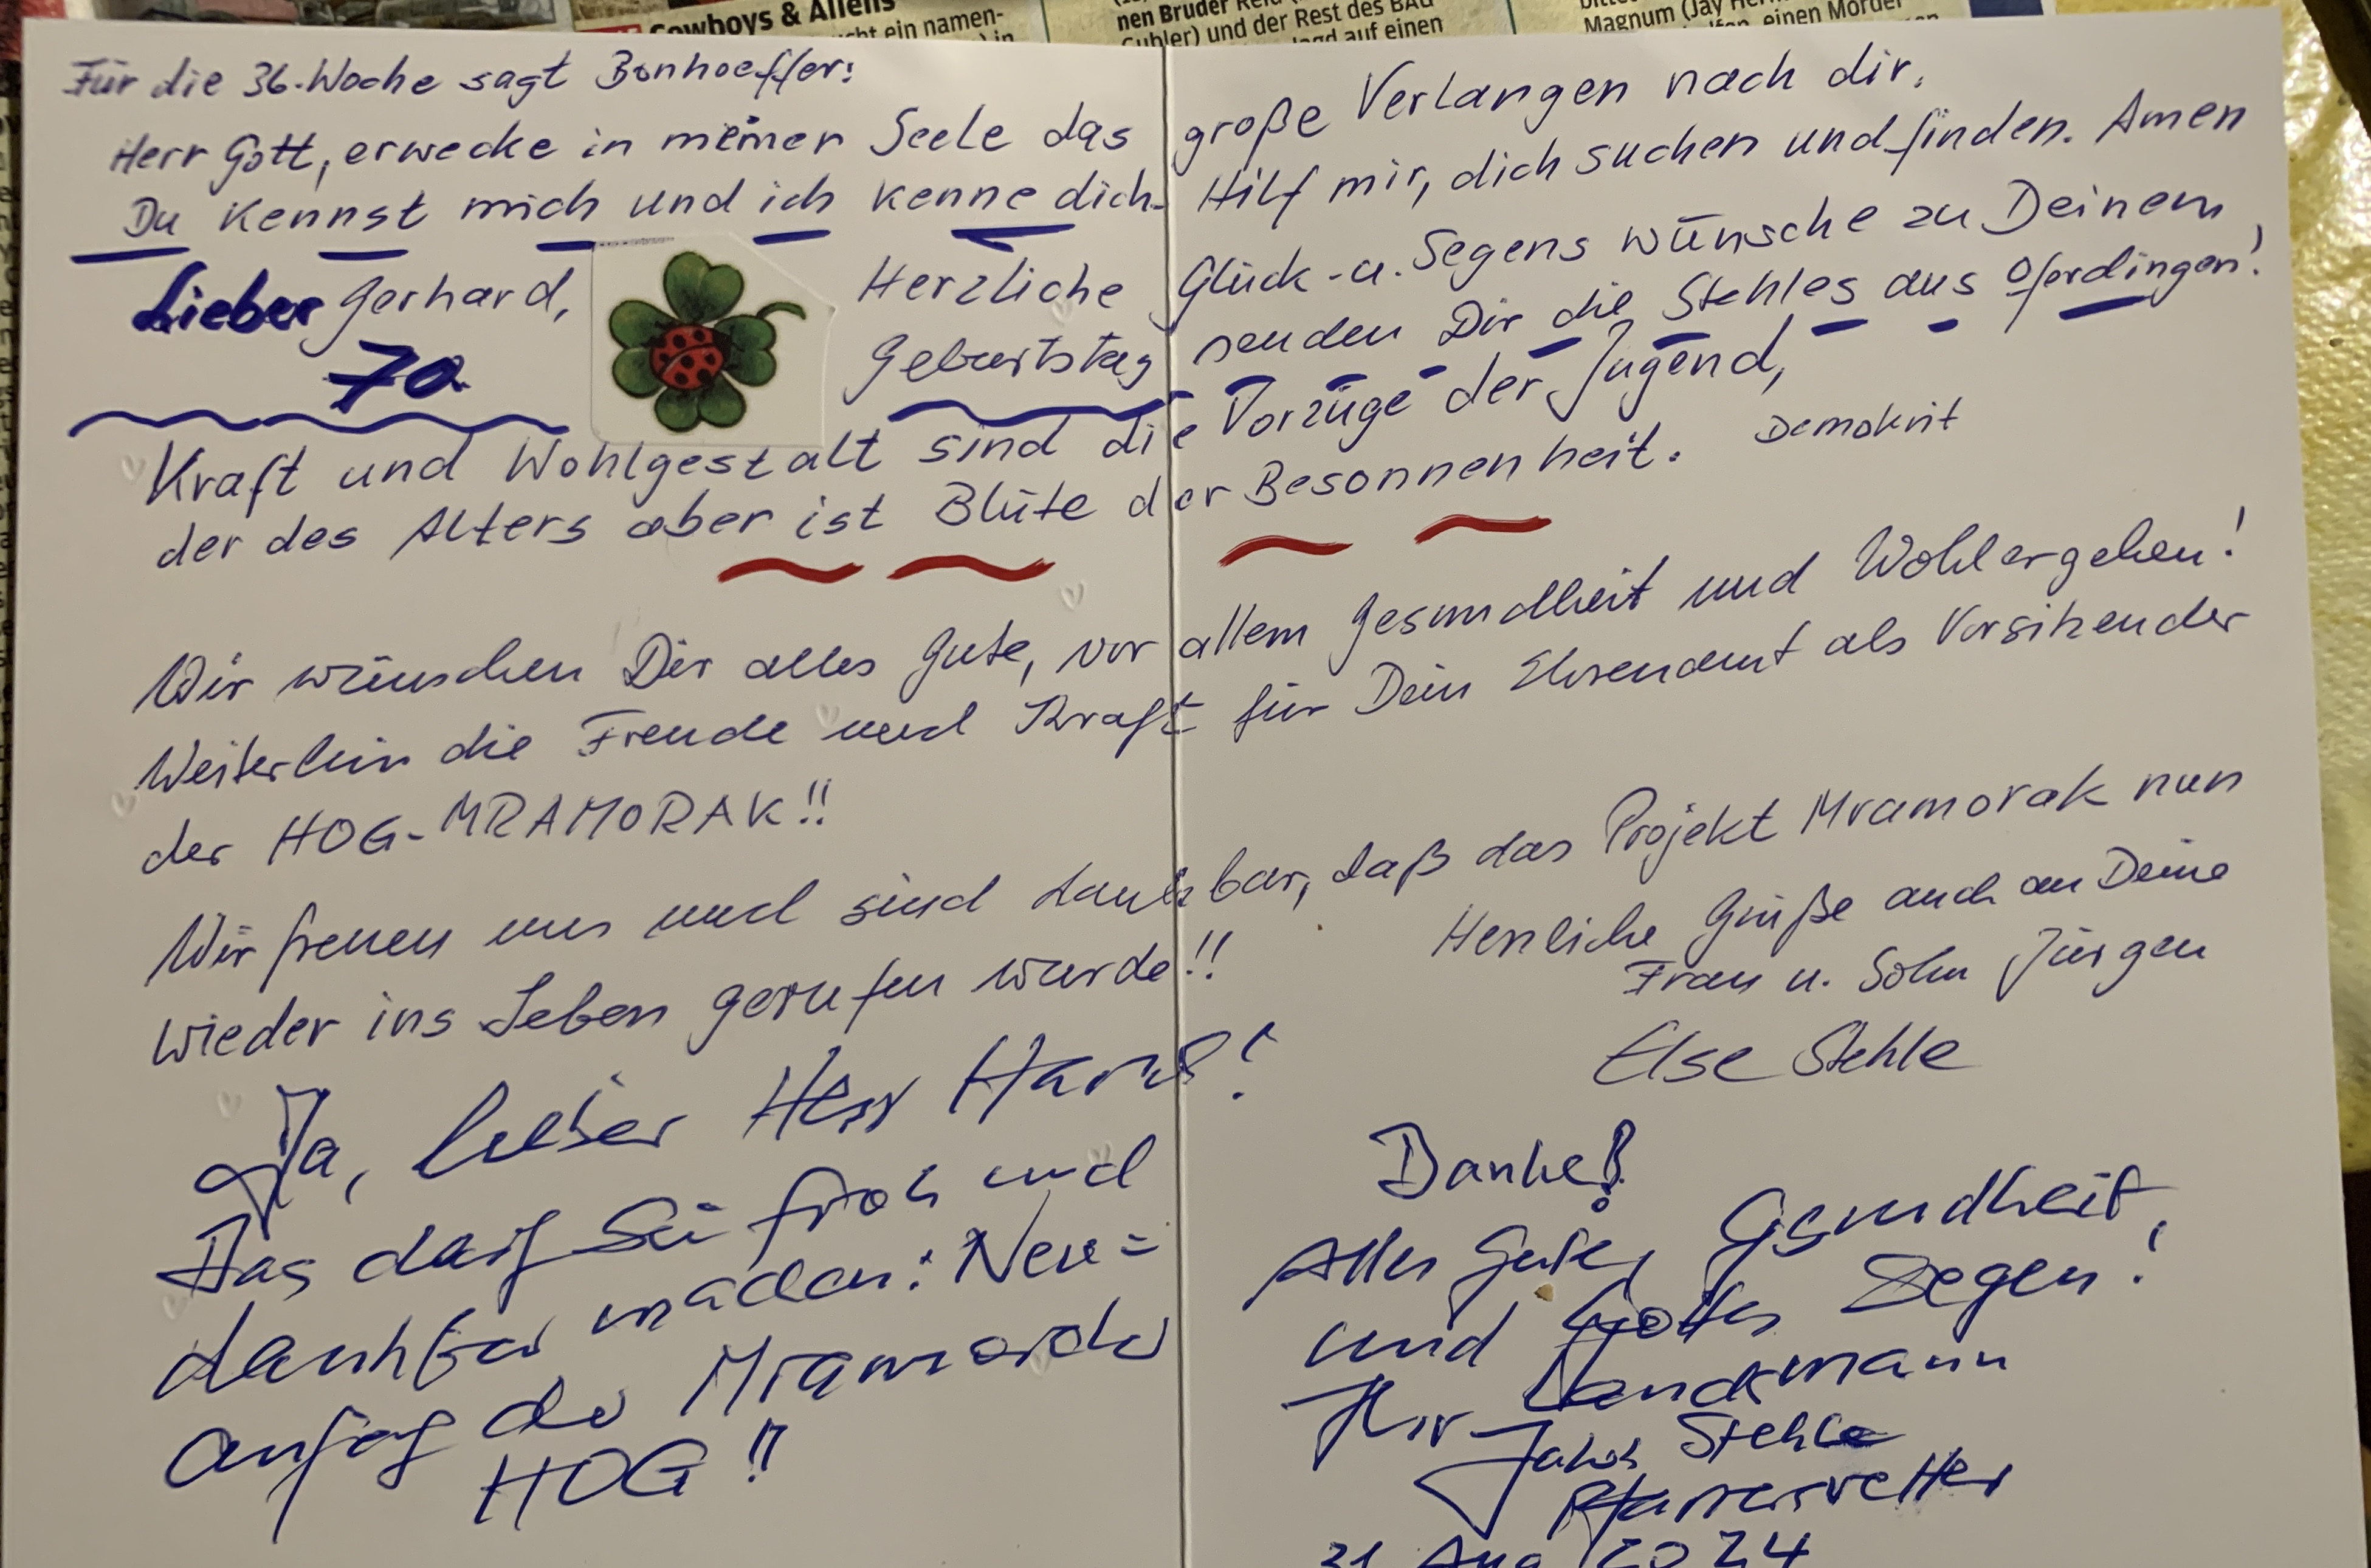 Cowboys & Aliens
cht ein namen-
nen Bruder
und der Rest des BAU
auf einen
Magnum (Jay
einen Mörder
Für die 36. Woche sagt Bonhoeffer:
Herr Gott, erwecke in meiner Seele das große Verlangen nach dir.
Du kennst mich und ich kenne dich. Hilf mir, dich suchen und finden. Amen
Lieber Gerhard, Herzliche Glück- u. Segens wünsche zu Deinem
70. Geburtstag senden Dir die Stehles aus Oferdingen!
Kraft und Wohlgestalt sind die Vorzüge der Jugend,
der des Alters aber ist Blüte der Besonnenheit. Demokrit
Wir wünschen Dir alles Gute, vor allem Gesundheit und Wohlergehen!
Weiterhin die Freude und Kraft für Dein Ehrenamt als Vorsitzender
der HOG-MRAMORAK!!
Wir freuen uns und sind dankbar, daß das Projekt Mramorak nun
wieder ins Leben gerufen wurde!!
Herzliche Grüße auch an Deine
Frau u. Sohn Jürgen
Else Stehle
Ja, lieber Herr
Das darf Sie froh und
dankbar machen: Neu=
anfang der Mramoraker
HOG!!
Danke!
Alles Gute, Gesundheit,
und Gottes Segen!
Ihr Landsmann
Jakob Stehle
Pfarrersvetter
31. Aug. 2024